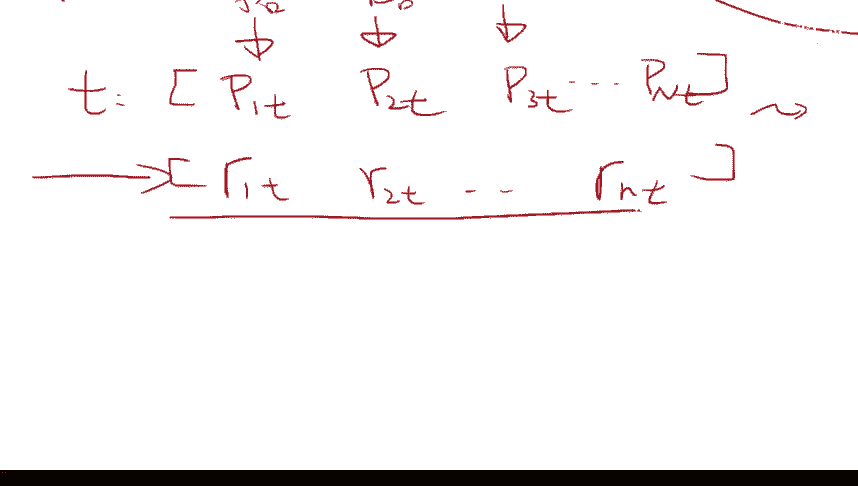 t: [ P₁t P₂t P₃t ... P_Nt ]
[ r₁t r₂t .. r_nt ]